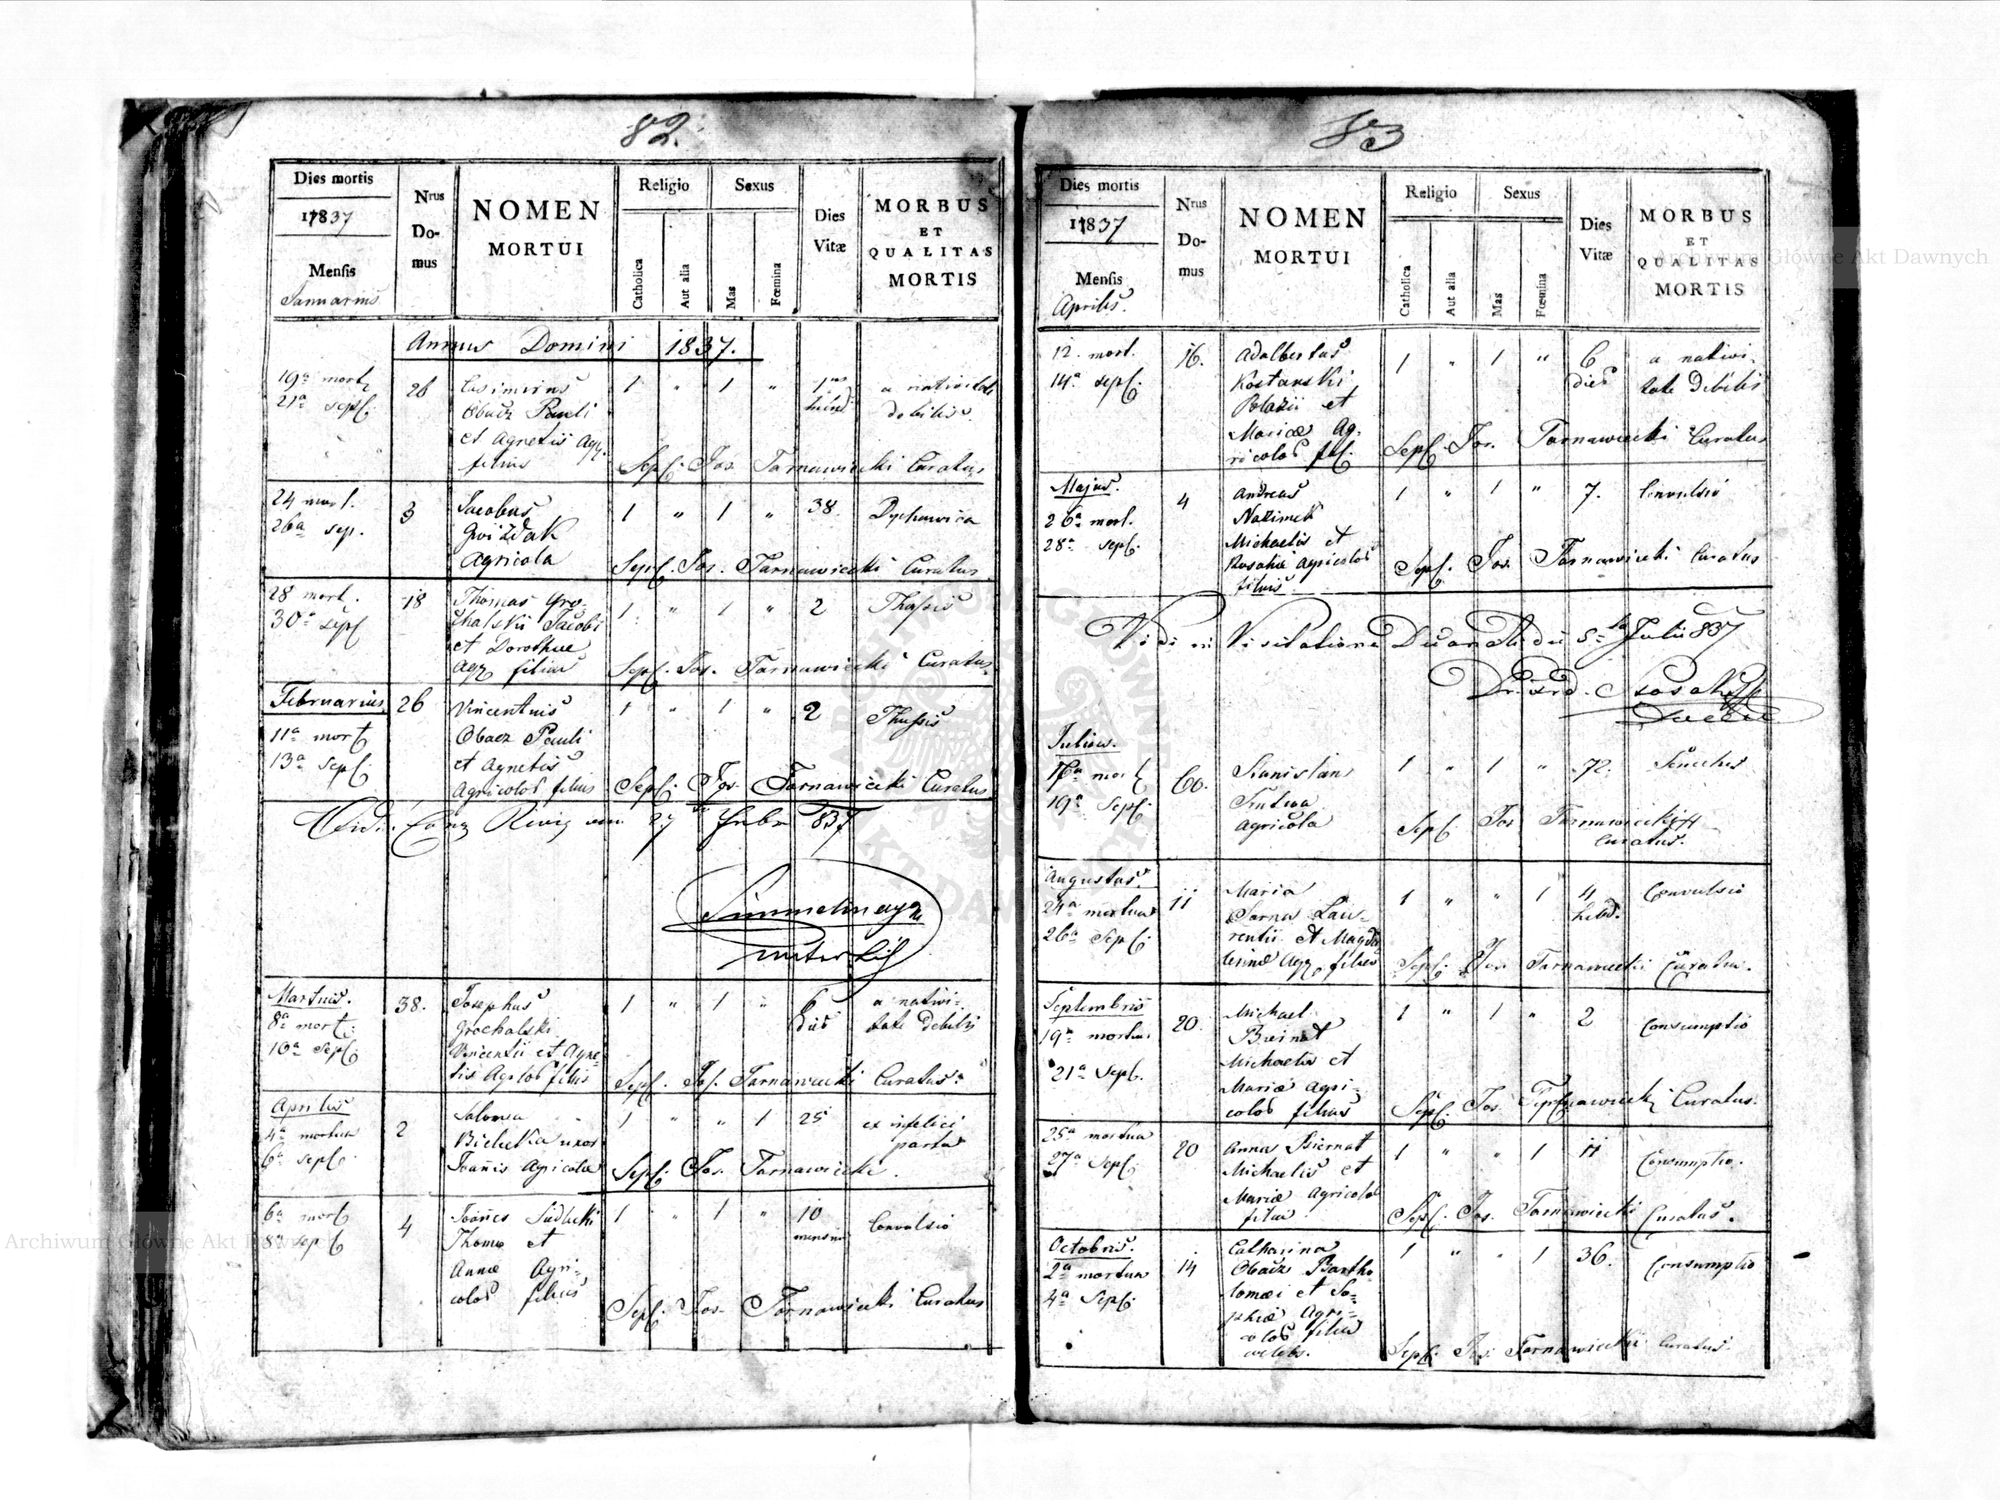 82.
Dies mortis
1837
Mensis
Januarius
Nrus
Do-
mus
NOMEN
MORTUI
Religio
Catholica
Aut alia
Sexus
Mas
Fœmina
Dies
Vitæ
MORBUS
ET
QUALITAS
MORTIS
Annus Domini 1837.
19a mort
21a sepl.
28
Casimirus
Obacz Pauli
et Agnetis Agr.
filius
1 " 1 "
a nativitate
debilis
Sepl. Jos. Tarnawiecki Curatus
24 mort.
26a sep.
3
Jacobus
Gwiżdak
Agricola
1 " 1 " 38.
Dychawica
Sepl. Jos. Tarnawiecki Curatus
28 mort.
30a sepl
18
Thomas Gro-
chalski Jacobi
et Dorothue
Agr filius
1 " 1 " 2
Thussis
Sepl. Jos. Tarnawiecki Curatus.
Februarius
11a mort
13a Sepl.
26
Vincentius
Obacz Pauli
et Agnetis
Agricolos filius
1 " 1 " 2
Thussis
Sepl. Jos. Tarnawiecki Curatus
27 Febr 837
Martius.
8a mort.
10a Sepl.
38.
Josephus
Grochalski
Vincentii et Agne-
tis Agrlos filius
1 " 1 " 6
dies
a nativi-
tate debilis
Sepl. Jos. Tarnawiecki Curatus.
Aprilis
4a mortua
6a sepl.
2
Salomea
Bielecka uxor
Joannis Agricolae
1 " " 1 25
ex infelici
partus
Sepl. Jos. Tarnawiecki.
6a mort
8a sepl
4
Joannes Siedlecki
Thomæ et
Annæ Agri-
colos filius
1 " 1 " 10
mensium
Convulsio
Sepl. Jos. Tarnawiecki Curatus
83
Dies mortis
1837
Mensis
Aprilis.
Nrus
Do-
mus
NOMEN
MORTUI
Religio
Catholica
Aut alia
Sexus
Mas
Fœmina
Dies
Vitæ
MORBUS
ET
QUALITAS
MORTIS
12. mort.
14a sepl.
16.
Adalbertus
Kostanski
et
Mariæ Ag-
ricolos fil.
1 " 1 " 6
dies
a nativi-
tate debilis
Sepl. Jos. Tarnawiecki Curatus
Majus.
26a mort.
28a sepl.
4
Andreas
Nazimek
Michaelis et
Rosaliæ Agricolos
filius.
1 " 1 " 7.
Convulsio
Sepl. Jos. Tarnawiecki Curatus
Vidi in Visitatione Decanali die 5ta Julii 837
Julius.
17a mort
19a Sepl.
60.
Stanislaus
Trutwa
Agricola
1 " 1 " 72.
Senectus
Sepl. Jos Tarnawiecki
Curatus.
Augustus.
24a mortua
26a Sepl.
11
Maria
Sarna Lau-
rentii et Magda
lennæ Agr. filia
1 " " 1 4
hebd.
Convulsio
Sepl. Jos. Tarnawiecki Curatus.
Septembris
19a mortuus
21a Sepl.
20.
Michael
Biernat
Michaelis et
Mariæ Agri-
colos filius
1 " 1 " 2
Consumptio
Sepl. Jos. Tarnawiecki Curatus.
25a mortua
27a Sepl.
20
Anna Biernat
Michaelis et
Mariæ Agricolos
filia
1 " " 1 11
Consumptio.
Sepl. Jos. Tarnawiecki Curatus.
Octobris.
2a mortua
4a Sepl.
14
Catharina
Obacz Bartho
lomæi et So-
phiæ Agri-
colos filia
celebs.
1 " " 1 36.
Consumptio
Sepl. Jos. Tarnawiecki Curatus.
Archiwum Główne Akt Dawnych
Archiwum Główne Akt Dawnych